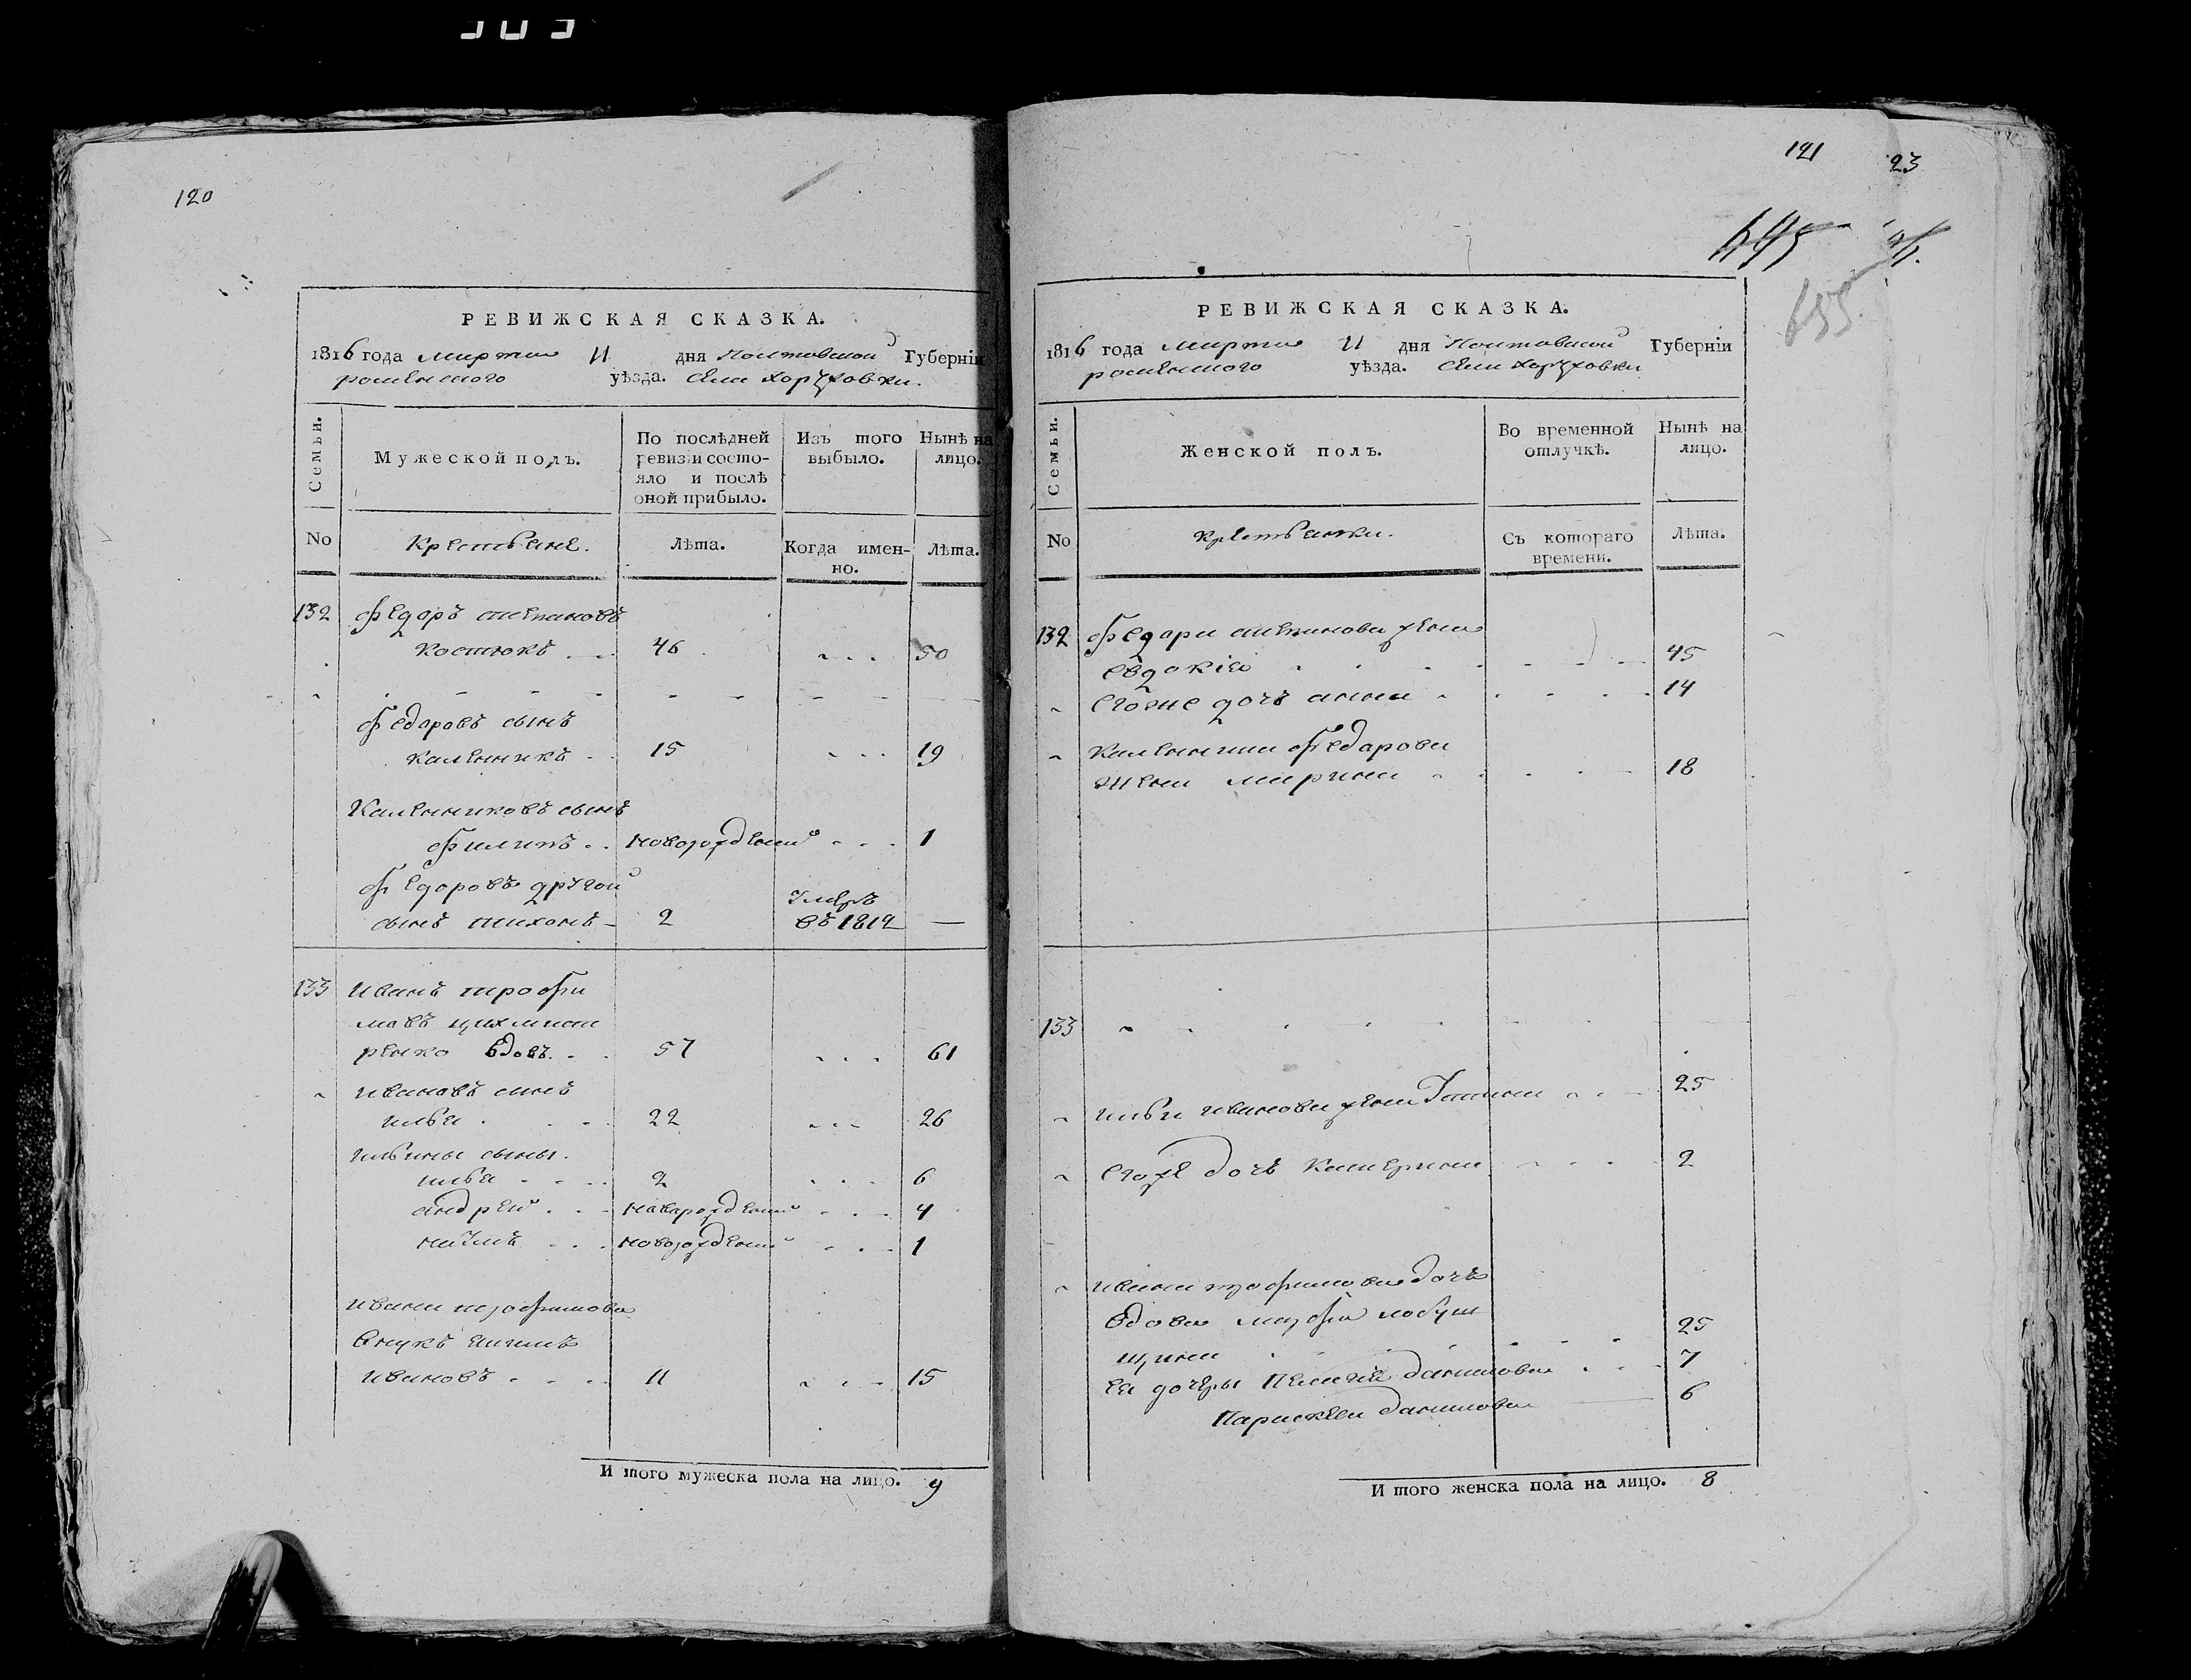 120
РЕВИЖСКАЯ СКАЗКА.
1816 года марта 11 дня Полтавской Губерніи
роменского уѣзда. села хоружовки.
Семьи.
Мужеской полъ.
По послѣдней ревизіи состояло и послѣ оной прибыло.
Изъ того выбыло.
Нынѣ на лицо.
No
Крестьяне.
Лѣта.
Когда именно.
Лѣта.
132 федоръ степановъ
костюкъ 46 50
федоровъ сынъ
каленникъ 15 19
Каленниковъ сынъ
филипъ новорожденный 1
федоровъ другой
сынъ тихонъ 2 умеръ въ 1812 —
133 Иванъ трофи
мовъ
ренко вдовъ 57 61
ивановъ сынъ
илья 22 26
ильины сыны.
илья 2 6
андрей новорожденный 4
наумъ новорожденный 1
ивана трофимова
внукъ
ивановъ 11 15
И того мужеска пола на лицо. 9
121 23
695
РЕВИЖСКАЯ СКАЗКА.
1816 года марта 11 дня Полтавской Губерніи
роменского уѣзда. села хоружовки
Семьи.
Женской полъ.
Во временной отлучкѣ.
Нынѣ на лицо.
No
крестьянки.
Съ котораго времени.
Лѣта.
132 федора степанова жена
евдокія 45
егоже дочь анна 14
каленника федорова
жена марина 18
133
ильи иванова жена 25
егоже дочь катерина 2
ивана трофимова дочь
вдова
щина 25
ея дочеры данилова 7
Параскева данилова 6
И того женска пола на лицо. 8